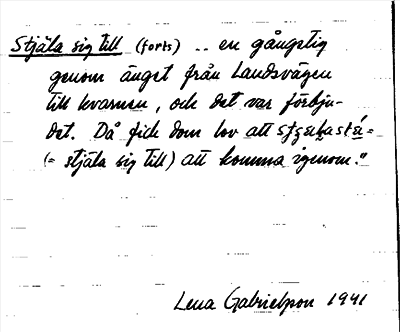 Stjäla sig till (forts) .. en gångstig
genom änget från landsvägen
till kvarnen, och det var förbju-
det. Då fick dom lov att
(= stjäla sig till) att komma igenom."
Lena Gabrielsson 1941